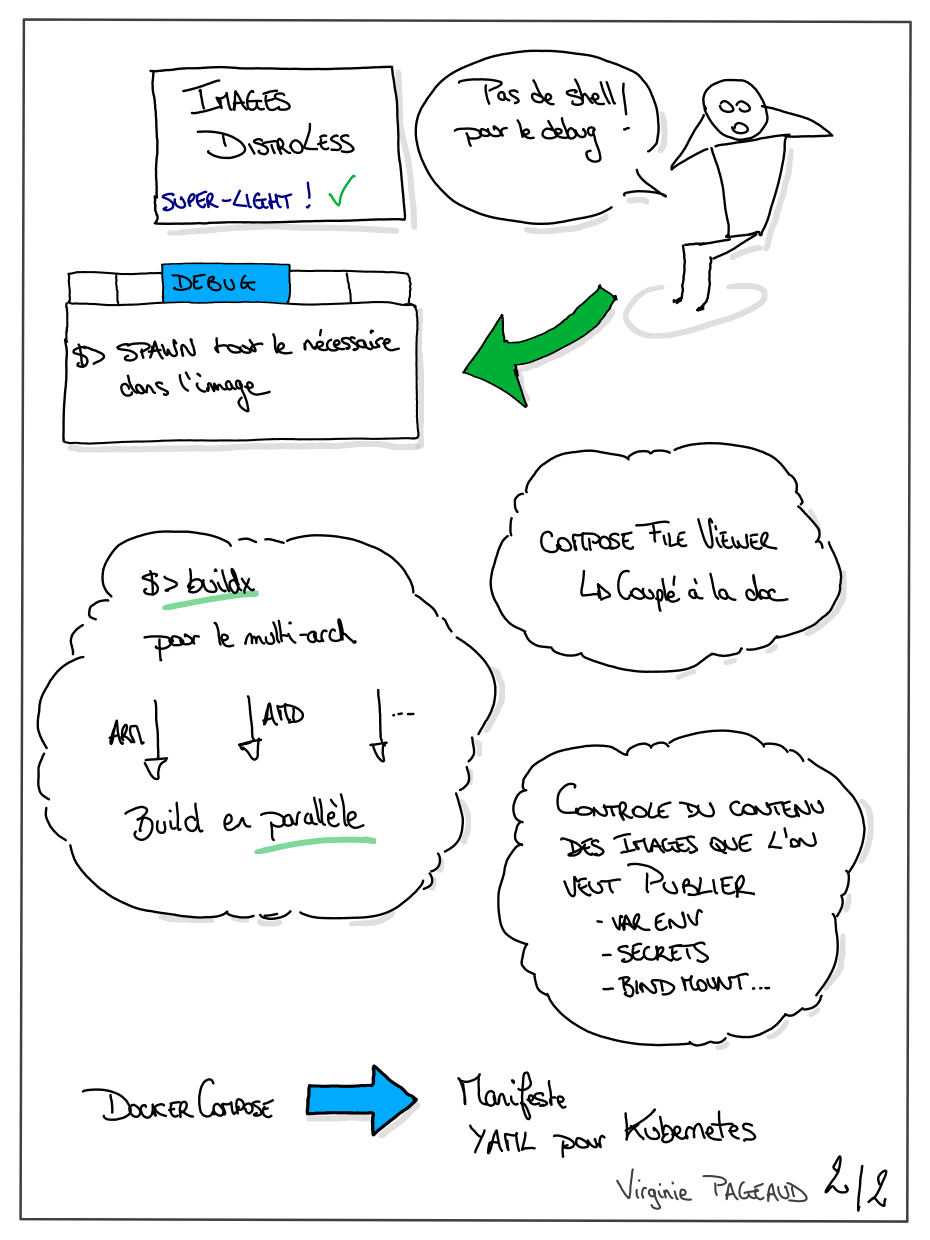 IMAGES
DISTROLESS
SUPER-LIGHT !
Pas de shell !
pour le debug
DEBUG
$> SPAWN tout le nécessaire
dans l'image
COMPOSE FILE VIEWER
Couplé à la doc
$> buildx
pour le multi-arch
ARM
AMD
...
Build en parallèle
CONTROLE DU CONTENU
DES IMAGES QUE L'ON
VEUT PUBLIER
- VAR ENV
- SECRETS
- BIND MOUNT...
DOCKER COMPOSE
Manifeste
YAML pour Kubernetes
Virginie PAGEAUD
2/2